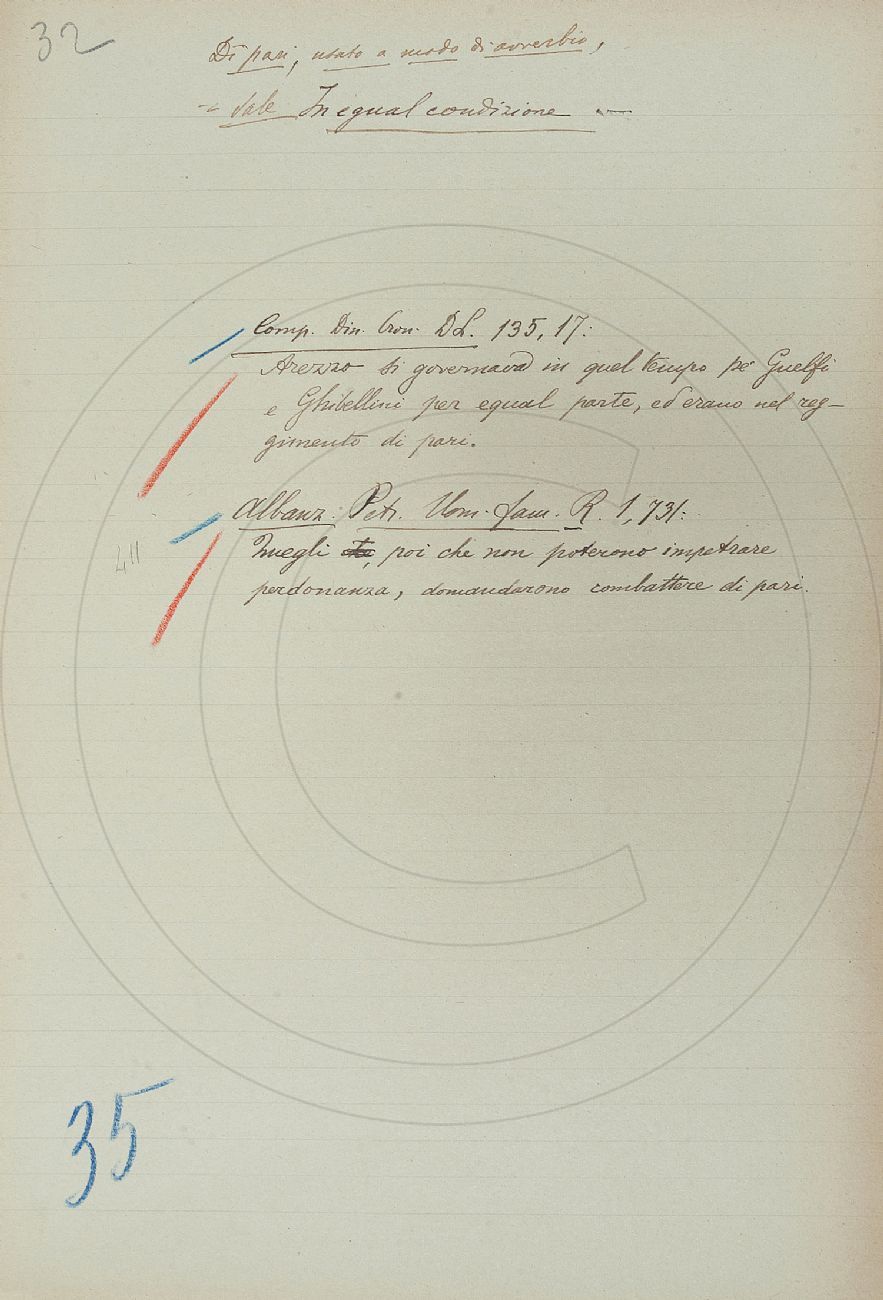 32
Di pari, usato a modo di avverbio,
- Vale In egual condizione -
Comp. Din. Cron. DL. 135, 17:
Arezzo si governava in quel tempo pe' Guelfi
e Ghibellini per egual parte, ed erano nel reg-
gimento di pari.
Albanz. Petr. Uom. fam. R. 1, 731:
Quegli poi che non poterono impetrare
perdonanza, domandarono combattere di pari.
35